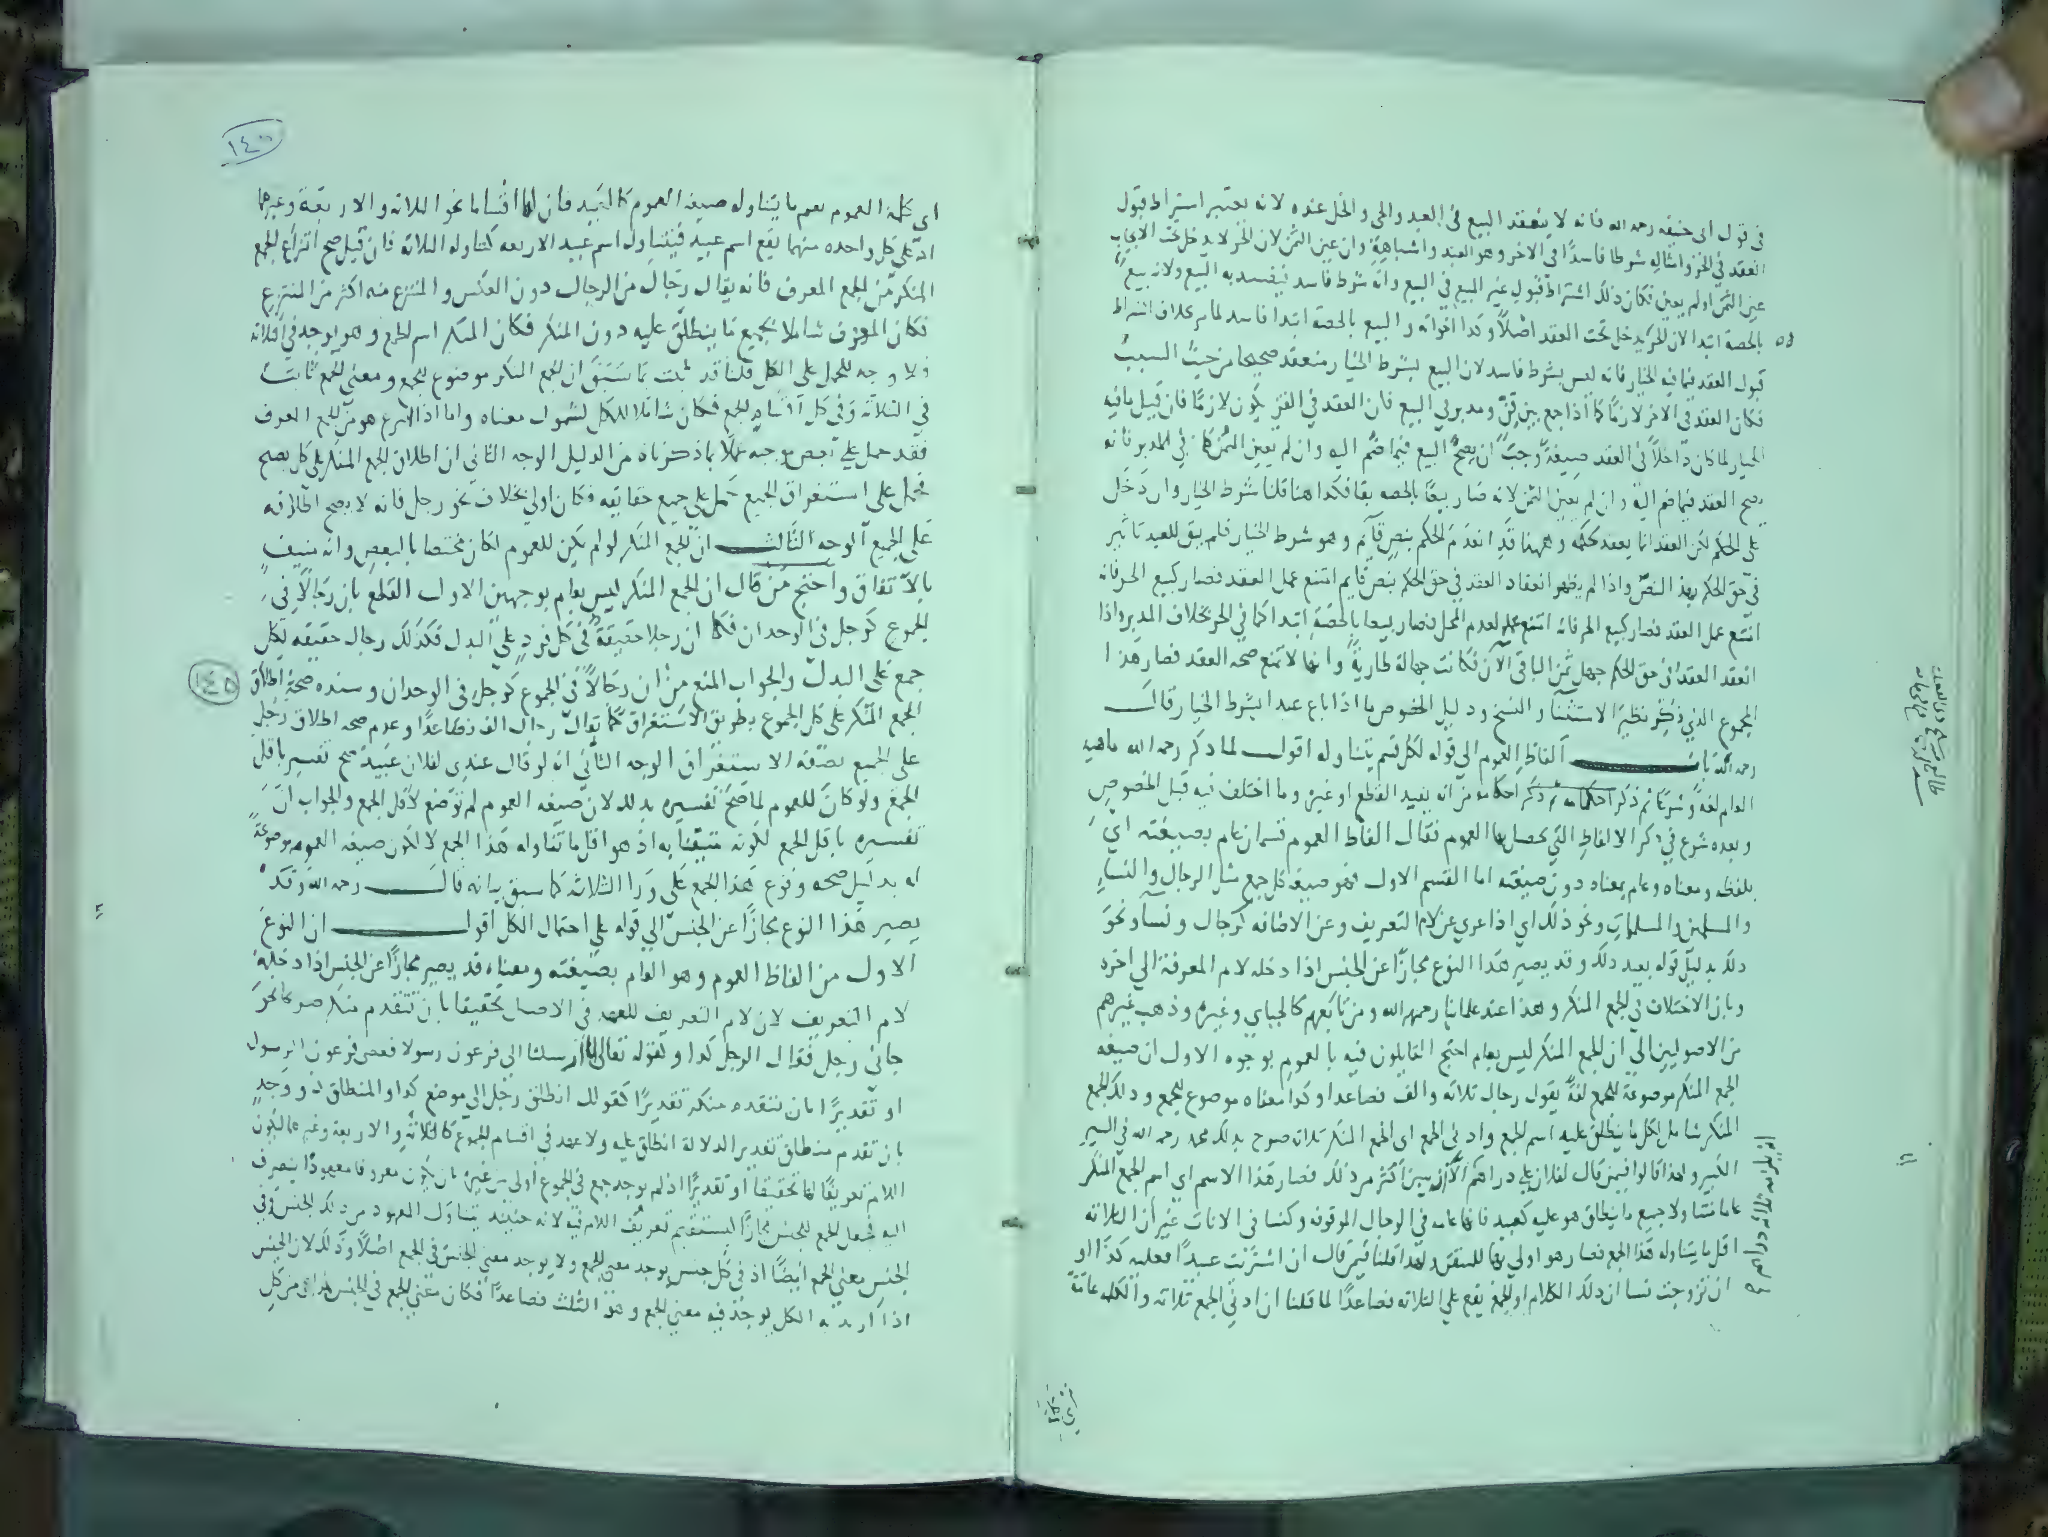 في قول ابى حنيفه رحمه الله فانه لا ينعقد البيع في العبد والحي والخل عنده لانه يعتبر اشتراط قبول
العقد في الحر وامثاله شرطا فاسدا في الاخر وهو العبد واشباهه وان عين الثمن لان الحر لا يدخل تحت الايجاب
عين الثمن او لم يعين فكان ذلك اشتراط قبول غير المبيع في البيع وانه شرط فاسد فيفسد به البيع ولانه بيع
بالحصة ابتدا لان الحر لم يدخل تحت العقد اصلا وكذا اخواته والبيع بالحصة ابتدا فاسد لما مر بخلاف اشتراط
قبول العقد فيما فيه الخيار فانه ليس بشرط فاسد لان البيع بشرط الخيار منعقد صحيحا من حيث السبب
فكان العقد في الاخر لازما كما اذا جمع بين قن ومدبر في البيع فان العقد في القن يكون لازما فان قيل ما فيه
الخيار لما كان داخلا في العقد صيغة وجب ان يصح البيع فيما ضم اليه وان لم يعين الثمن كما في المدبر فانه
يصح العقد فيما ضم اليه وان لم يعين الثمن لانه صار بيعا بالحصه بقا فكذا هنا قلنا شرط الخيار وارد دخل
على الحكم لكن العقد انما يعقد لحكمه وههنا قد انعدم الحكم بنص قايم وهو شرط الخيار فلم يبق للعبد تاثير
في حق الحكم بهذا النص واذا لم يظهر انعقاد العقد في حق الحكم بنص قايم امتنع عمل العقد فصار كبيع الحر فانه
امتنع عمل العقد فصار كبيع الحر فانه امتنع عمله لعدم المحل فصار بيعا بالحصة ابتدا كما في الحر بخلاف المدبر واذا
انعقد العقد في حق الحكم جهل ثمن الباقي الآن فكانت جهالة طارية وانها لا تمنع صحه العقد فصار هذا
المجموع الذي ذكر نظير الاستثنا والنسخ ودليل الخصوص ما اذا باع عبدا بشرط الخيار قال
رحمه الله باب الفاظ العموم الى قوله لكل قسم يتناوله اقول لما ذكر رحمه الله ماهية
العام لغة وشرعا ثم ذكر احكامه ثم ذكر احكامه من انه يفيد القطع او غيره وما اختلف فيه قبل الخصوص
وبعده شرع في ذكر الالفاظ التي يحصل بها العموم فقال الفاظ العموم قسمان عام بصيغته اي
بلفظه ومعناه وعام بمعناه دون صيغته اما القسم الاول فهو صيغة كل جمع مثل الرجال والنسا
والمسلمين والمسلمات ونحو ذلك اي اذا عري عن لام التعريف وعن الاضافه كرجال ونسآ ونحو
ذلك بدليل قوله بعيد ذلك وقد يصير هذا النوع مجازا عن الجنس اذا دخله لام المعرفة الي اخره
وبان الاختلاف في الجمع المنكر وهذا عند علمائنا رحمهم الله ومن تابعهم كالجباي وغيره وذهب غيرهم
من الاصوليين الي ان الجمع المنكر ليس بعام احتج القايلون فيه بالعموم بوجوه الاول ان صيغه
الجمع المنكر موضوعة للجمع لغة يقول رجال ثلاثه والف فصاعدا وكذا معناه موضوع للجمع وذلك الجمع
المنكر شامل لكل ما ينطلق عليه اسم الجمع وادنى الجمع اي الجمع المنكر ثلاثه صرح بذلك محمد رحمه الله في السير
الكبير ولهذا قالوا فيمن قال لفلان علي دراهم الا ان يبين اكثر من ذلك فصار هذا الاسم اي اسم الجمع المنكر
عاما متناولا جميع ما ينطلق هو عليه كعبيد فانها عامه في الرجال الموقوفه وكنسا في الاناث غير ان الثلاثه
اقل ما يتناوله هذا الجمع فصار هو اولي بها للتيقن ولهذا قلنا فيمن قال ان اشتريت عبيدا فعليه كذا او
ان تزوجت نسا ان ذلك الكلام او الجمع يقع علي الثلاثه فصاعدا لما قلنا ان ادنى الجمع ثلاثه والكلمه عامة
انه يلزمه ثلاثه دراهم صح
١٤٥
اي كلمة العموم يعم ما يتناوله صيغه العموم كالعبيد فان لها اقساما نحو الثلاثه والاربعة وغيرهما
اذ علي كل واحده منهما يقع اسم عبيد فيتناول اسم عبيد الاربعه كتناوله الثلاثه فان قيل صح انتزاع الجمع
المنكر من الجمع المعرف فانه يقال رجال من الرجال دون العكس والمنتزع منه اكثر من المنتزع
فكان المعرف شاملا لجميع ما ينطلق عليه دون المنكر فكان المنكر اسم الجمع وهو يوجد في الثلاثه
فلا وجه للحمل على الكل قلنا قد ثبت بما سبق ان الجمع المنكر موضوع للجمع ومعني الجمع ثابت
في الثلاثه وفي كل اقسام الجمع فكان شاملا للكل لشمول معناه واما اذا انتزع هو من الجمع المعرف
فقد حمل علي بعض موجبه عملا بما ذكرناه من الدليل الوجه الثاني ان اطلاق الجمع المنكر على كل يصح
فحمل على استغراق الجميع حمل على جميع حقايقه فكان اولى بخلاف نحو رجل فانه لا يصح اطلاقه
على الجميع الوجه الثالث ان الجمع المنكر لو لم يكن للعموم لكان مختصا بالبعض وانه منتف
بالاتفاق واحتج من قال ان الجمع المنكر ليس بعام بوجهين الاول القطع بان رجالا في
الجموع كرجل في الوحدان فكما ان رجلا حقيقة في كل فرد على البدل فكذلك رجال حقيقه لكل
جمع على البدل والجواب المنع من ان رجالا في الجموع كرجل في الوحدان وسنده صحة اطلاق
١٤٥
الجمع المنكر على كل الجموع بطريق الاستغراق كما يقال رجال الف فصاعدا وعدم صحه اطلاق رجل
على الجميع بصفه الاستغراق الوجه الثاني انه لو قال عندي لفلان عبيد صح تفسيره باقل
الجمع ولو كان للعموم لما صح تفسيره بذلك لان صيغه العموم لم توضع لاقل الجمع والجواب ان
تفسيره باقل الجمع لكونه متيقنا به اذ هو اقل ما تناوله هذا الجمع لا لكون صيغه العموم موضوعة
له بدليل صحه وقوع هذا الجمع على ورا الثلاثه كما سبق بيانه قال رحمه الله وقد
يصير هذا النوع مجازا عن الجنس الي قوله علي احتمال الكل اقول ان النوع
الاول من الفاظ العموم وهو العام بصيغته ومعناه قد يصير مجازا عن الجنس اذا دخله
لام التعريف لان لام التعريف للعهد في الاصل تحقيقا بان تقدم منكر صريحا نحو
جاني رجل فقال الرجل كذا وكقوله تعالى كما ارسلنا الى فرعون رسولا فعصى فرعون الرسول
او تقديرا بان تتقدم منكر تقديرا كقولك انطلق رجل الى موضع كذا والمنطلق ذو وجد
بان تقدم منطلق تقديرا لدلالة انطلق عليه ولا عهد في اقسام الجموع كالثلاثه والاربعة وغيرهما ليكون
اللام تعريفا لها تحقيقا او تقديرا اذ لم يوجد جمع في الجموع اولى من غيره بان يكون معروفا معهودا ينصرف
اليه فجعل الجمع للجنس مجازا ليستقيم تعريف اللام فيه لانه حينئذ يتناول المعهود من ذلك الجنس وفي
الجنس معني الجمع ايضا اذ في كل جنس يوجد معنى الجمع ولا يوجد معنى الجنس في الجمع اصلا وذلك لان الجنس
اذا اريد به الكل يوجد فيه معنى الجمع وهو الثلث فصاعدا فكان معني الجمع في الجنس من كل